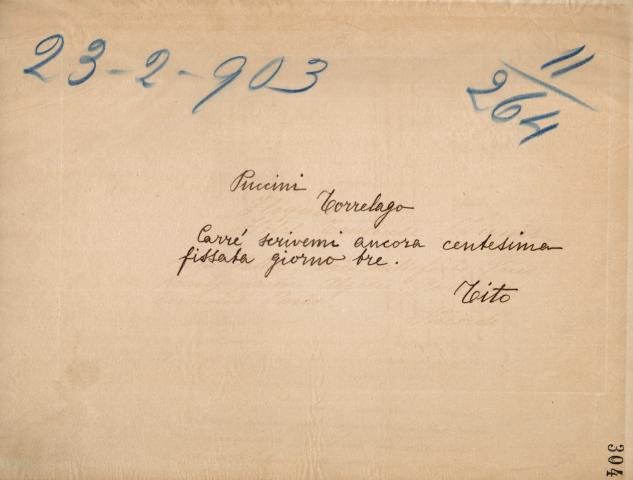 23-2-903
11/264
Puccini
Torrelago
Carré scrivemi ancora centesima
fissata giorno tre.
Tito
304